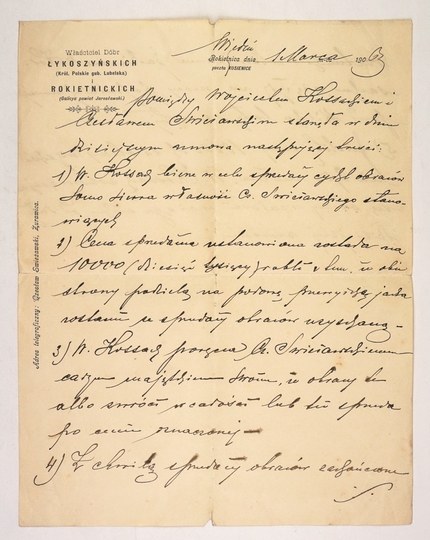 Właściciel Dóbr
ŁYKOSZYŃSKICH
(Król. Polskie gub. Lubelska)
i
ROKIETNICKICH
(Galicya powiat Jarosławski.)
Wiedeń
Rokietnica dnia 1 Marca 190
poczta ROKIETNICA
Pomiędzy Wojciechem Kossakiem i
Czesławem Świeżawskim stanęła w dniu
dzisiejszym umowa następującej treści:
1) W. Kossak bierze w celu sprzedaży cykl obrazów
własność Cz. Świeżawskiego stano-
wiących
2) Cena sprzedażna ustanowioną została na
10000 (dziesięć tysięcy) rubli z tem, że obie
strony podzielą na połowę przewyżkę jaka
zostanie ze sprzedaży obrazów uzyskaną –
3) W. Kossak poręcza Cz. Świeżawskiemu
całym majątkiem swoim, że obrazy te
albo zwróci w całości lub też sprzeda
po cenie oznaczonej –
4) Z chwilą sprzedaży obrazów
Adres telegraficzny: Czesław Świeżawski, Żurawica.